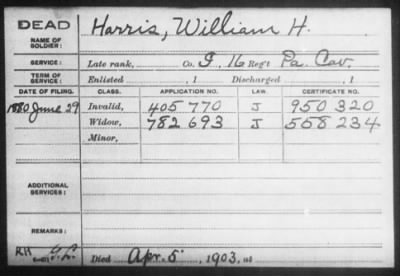 DEAD
NAME OF SOLDIER: Harris, William H.
SERVICE: Late rank, Co. G, 16 Reg't Pa. Cav.
TERM OF SERVICE: Enlisted , 1 Discharged , 1
DATE OF FILING. CLASS. APPLICATION NO. LAW. CERTIFICATE NO.
1880 June 29 Invalid, 405 770 J 950 320
Widow, 782 693 J 558 234
Minor,
ADDITIONAL SERVICES:
REMARKS:
Died Apr. 5 , 1903, at